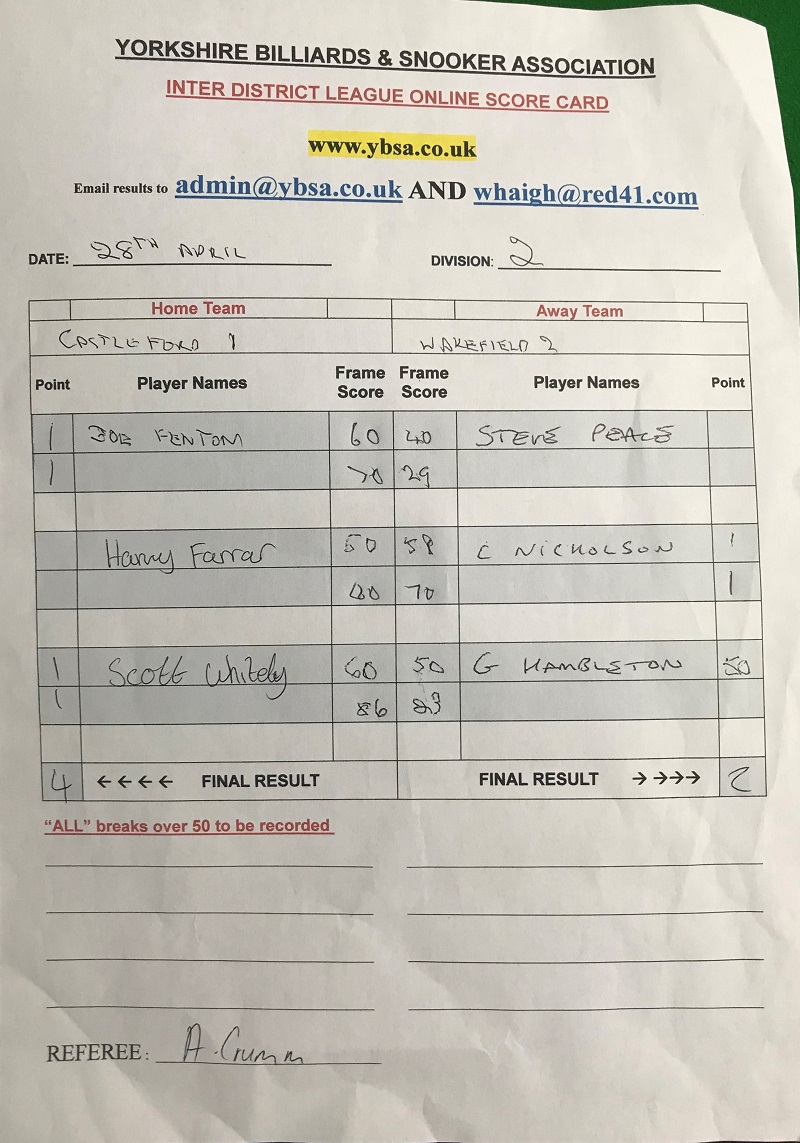 YORKSHIRE BILLIARDS & SNOOKER ASSOCIATION
INTER DISTRICT LEAGUE ONLINE SCORE CARD
www.ybsa.co.uk
Email results to admin@ybsa.co.uk AND whaigh@red41.com
DATE: 28TH APRIL DIVISION: 2
Home Team Away Team
CASTLEFORD 1 WAKEFIELD 2
Point Player Names Frame Score Frame Score Player Names Point
1 JOE FENTOM 60 40 STEVE PEACE
1 70 29
Harry Farrar 50 58 C NICHOLSON 1
40 70 1
1 Scott Whitely 60 50 G HAMBLETON 50
1 86 23
4 ←←←← FINAL RESULT FINAL RESULT →→→→ 2
“ALL” breaks over 50 to be recorded
REFEREE: A. Crumm